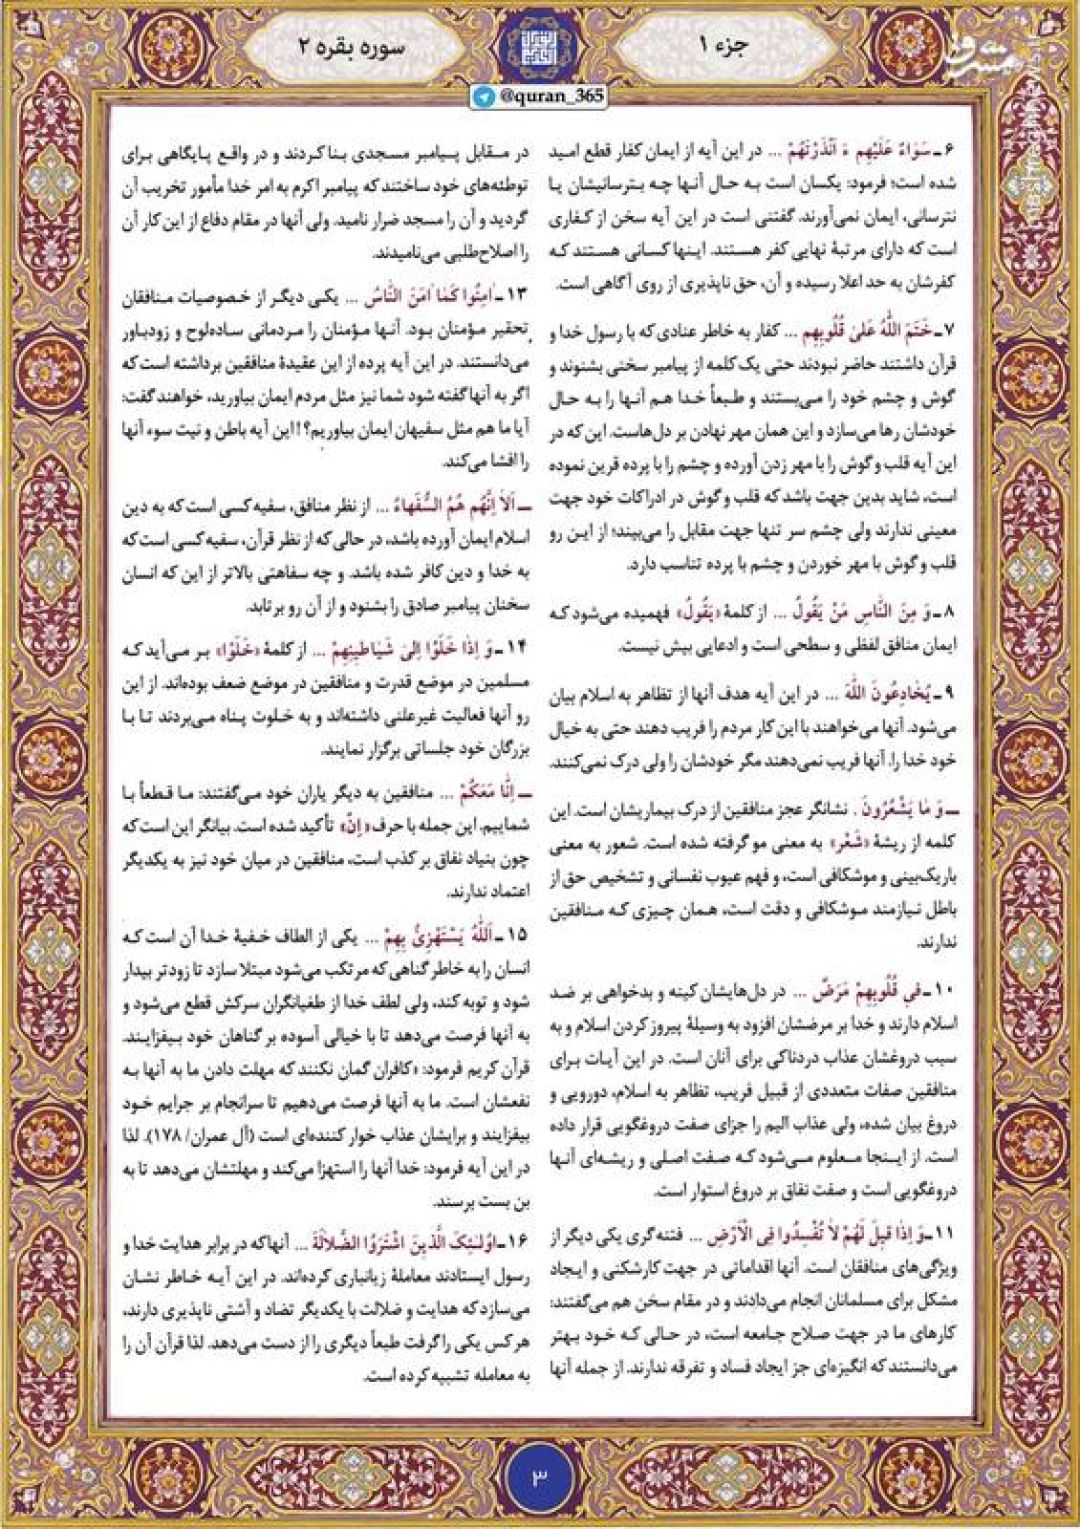 جزء ۱
سوره بقره ۲
@quran_365
مشرق
۶ـ سَوَاءٌ عَلَیْهِم ءَ اَنْذَرْتَهُمْ ... در این آیه از ایمان کفار قطع امید
شده است؛ فرمود: یکسان است به حال آنها چه بترسانیشان یا
نترسانی، ایمان نمی‌آورند. گفتنی است در این آیه سخن از کفاری
است که دارای مرتبهٔ نهایی کفر هستند. اینها کسانی هستند که
کفرشان به حد اعلا رسیده و آن، حق ناپذیری از روی آگاهی است.
۷ـ خَتَمَ اللّٰهُ عَلیٰ قُلُوبِهِم ... کفار به خاطر عنادی که با رسول خدا و
قرآن داشتند حاضر نبودند حتی یک کلمه از پیامبر سخنی بشنوند و
گوش و چشم خود را می‌بستند و طبعاً خدا هم آنها را به حال
خودشان رها می‌سازد و این همان مهر نهادن بر دل‌هاست. این که در
این آیه قلب و گوش را با مهر زدن آورده و چشم را با پرده قرین نموده
است، شاید بدین جهت باشد که قلب و گوش در ادراکات خود جهت
معینی ندارند ولی چشم سر تنها جهت مقابل را می‌بیند؛ از این رو
قلب و گوش با مهر خوردن و چشم با پرده تناسب دارد.
۸ـ وَ مِنَ النّٰاسِ مَنْ یَقُولُ ... از کلمهٔ «یَقُولُ» فهمیده می‌شود که
ایمان منافق لفظی و سطحی است و ادعایی بیش نیست.
۹ـ یُخٰادِعُونَ اللّٰهَ ... در این آیه هدف آنها از تظاهر به اسلام بیان
می‌شود. آنها می‌خواهند با این کار مردم را فریب دهند حتی به خیال
خود خدا را. آنها فریب نمی‌دهند مگر خودشان را ولی درک نمی‌کنند.
ـ وَ مٰا یَشْعُرُونَ . نشانگر عجز منافقین از درک بیماریشان است. این
کلمه از ریشهٔ «شَعْر» به معنی مو گرفته شده است. شعور به معنی
باریک‌بینی و موشکافی است، و فهم عیوب نفسانی و تشخیص حق از
باطل نیازمند موشکافی و دقت است، همان چیزی که منافقین
ندارند.
۱۰ـ فی قُلُوبِهِمْ مَرَضٌ ... در دل‌هایشان کینه و بدخواهی بر ضد
اسلام دارند و خدا بر مرضشان افزود به وسیلهٔ پیروز کردن اسلام و به
سبب دروغشان عذاب دردناکی برای آنان است. در این آیات برای
منافقین صفات متعددی از قبیل فریب، تظاهر به اسلام، دورویی و
دروغ بیان شده، ولی عذاب الیم را جزای صفت دروغگویی قرار داده
است. از اینجا معلوم می‌شود که صفت اصلی و ریشه‌ای آنها
دروغگویی است و صفت نفاق بر دروغ استوار است.
۱۱ـ وَ اِذٰا قیلَ لَهُمْ لاٰ تُفْسِدُوا فِی الْاَرْضِ ... فتنه گری یکی دیگر از
ویژگی‌های منافقان است. آنها اقداماتی در جهت کارشکنی و ایجاد
مشکل برای مسلمانان انجام می‌دادند و در مقام سخن هم می‌گفتند:
کارهای ما در جهت صلاح جامعه است، در حالی که خود بهتر
می‌دانستند که انگیزه‌ای جز ایجاد فساد و تفرقه ندارند. از جمله آنها
در مقابل پیامبر مسجدی بنا کردند و در واقع پایگاهی برای
توطئه‌های خود ساختند که پیامبر اکرم به امر خدا مأمور تخریب آن
گردید و آن را مسجد ضرار نامید. ولی آنها در مقام دفاع از این کار آن
را اصلاح‌طلبی می‌نامیدند.
۱۳ـ اٰمِنُوا کَمٰا اٰمَنَ النّٰاسُ ... یکی دیگر از خصوصیات منافقان
تحقیر مؤمنان بود. آنها مؤمنان را مردمانی ساده‌لوح و زودباور
می‌دانستند. در این آیه پرده از این عقیدهٔ منافقین برداشته است که
اگر به آنها گفته شود شما نیز مثل مردم ایمان بیاورید، خواهند گفت:
آیا ما هم مثل سفیهان ایمان بیاوریم؟!! این آیه باطن و نیت سوء آنها
را افشا می‌کند.
ـ اَلاٰ اِنَّهُم هُمُ السُّفَهٰاءُ ... از نظر منافق، سفیه کسی است که به دین
اسلام ایمان آورده باشد، در حالی که از نظر قرآن، سفیه کسی است که
به خدا و دین کافر شده باشد. و چه سفاهتی بالاتر از این که انسان
سخنان پیامبر صادق را بشنود و از آن رو برتابد.
۱۴ـ وَ اِذٰا خَلَوْا اِلیٰ شَیٰاطینِهِمْ ... از کلمهٔ «خَلَوْا» بر می‌آید که
مسلمین در موضع قدرت و منافقین در موضع ضعف بوده‌اند. از این
رو آنها فعالیت غیرعلنی داشته‌اند و به خلوت پناه می‌بردند تا با
بزرگان خود جلساتی برگزار نمایند.
ـ اِنّٰا مَعَکُمْ ... منافقین به دیگر یاران خود می‌گفتند: ما قطعاً با
شماییم. این جمله با حرف «اِنَّ» تأکید شده است. بیانگر این است که
چون بنیاد نفاق بر کذب است، منافقین در میان خود نیز به یکدیگر
اعتماد ندارند.
۱۵ـ اَللّٰهُ یَسْتَهْزِئُ بِهِمْ ... یکی از الطاف خفیهٔ خدا آن است که
انسان را به خاطر گناهی که مرتکب می‌شود مبتلا سازد تا زودتر بیدار
شود و توبه کند، ولی لطف خدا از طغیانگران سرکش قطع می‌شود و
به آنها فرصت می‌دهد تا با خیالی آسوده بر گناهان خود بیفزایند.
قرآن کریم فرمود: «کافران گمان نکنند که مهلت دادن ما به آنها به
نفعشان است. ما به آنها فرصت می‌دهیم تا سرانجام بر جرایم خود
بیفزایند و برایشان عذاب خوار کننده‌ای است (آل عمران/ ۱۷۸). لذا
در این آیه فرمود: خدا آنها را استهزا می‌کند و مهلتشان می‌دهد تا به
بن بست برسند.
۱۶ـ اُولٰـئِکَ الَّذینَ اشْتَرَوُا الضَّلاٰلَةَ ... آنها که در برابر هدایت خدا و
رسول ایستادند معاملهٔ زیانباری کرده‌اند. در این آیه خاطر نشان
می‌سازد که هدایت و ضلالت با یکدیگر تضاد و آشتی ناپذیری دارند،
هر کس یکی را گرفت طبعاً دیگری را از دست می‌دهد. لذا قرآن آن را
به معامله تشبیه کرده است.
۳